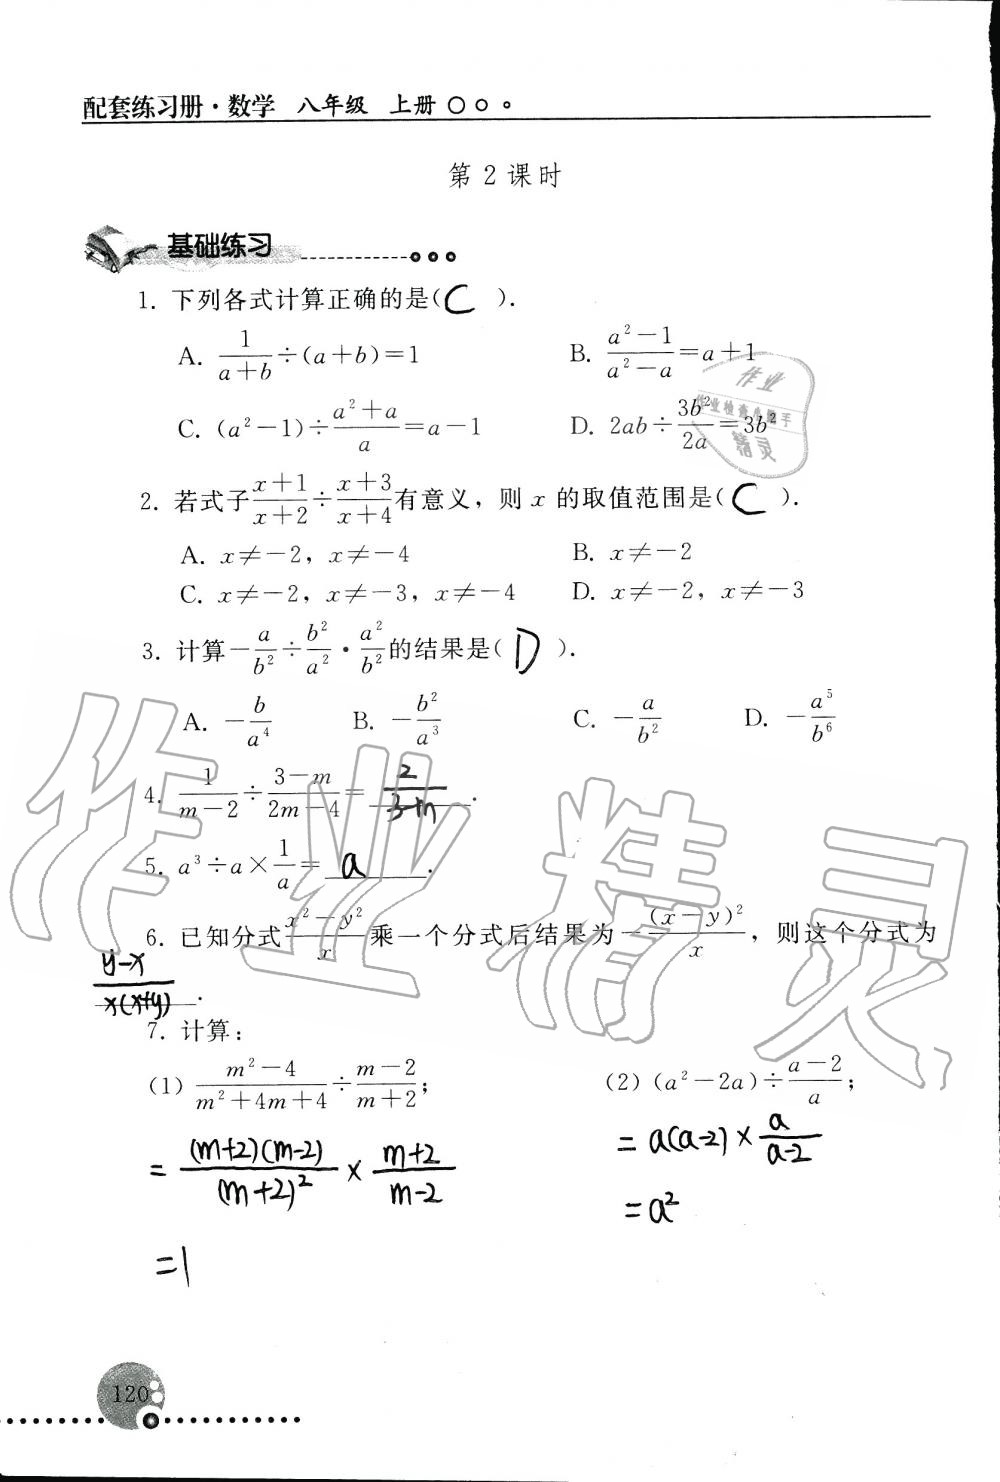 配套练习册·数学 八年级 上册
第2课时
基础练习
1. 下列各式计算正确的是( C ).
A. \frac{1}{a+b}÷(a+b)=1 B. \frac{a²-1}{a²-a}=a+1
C. (a²-1)÷\frac{a²+a}{a}=a-1 D. 2ab÷\frac{3b²}{2a}=3b²
2. 若式子\frac{x+1}{x+2}÷\frac{x+3}{x+4}有意义，则 x 的取值范围是( C ).
A. x≠-2，x≠-4 B. x≠-2
C. x≠-2，x≠-3，x≠-4 D. x≠-2，x≠-3
3. 计算-\frac{a}{b²}÷\frac{b²}{a²}·\frac{a²}{b²}的结果是( D ).
A. -\frac{b}{a⁴} B. -\frac{b²}{a³} C. -\frac{a}{b²} D. -\frac{a⁵}{b⁶}
4. \frac{1}{m-2}÷\frac{3-m}{2m-4}=\frac{2}{3-m}.
5. a³÷a×\frac{1}{a}=a.
6. 已知分式\frac{x²-y²}{x}乘一个分式后结果为-\frac{(x-y)²}{x}，则这个分式为
\frac{y-x}{x(x+y)}.
7. 计算：
(1) \frac{m²-4}{m²+4m+4}÷\frac{m-2}{m+2}; (2) (a²-2a)÷\frac{a-2}{a};
=\frac{(m+2)(m-2)}{(m+2)²}×\frac{m+2}{m-2} =a(a-2)×\frac{a}{a-2}
=1 =a²
120
作业精灵
作业
作业检查小助手
精灵